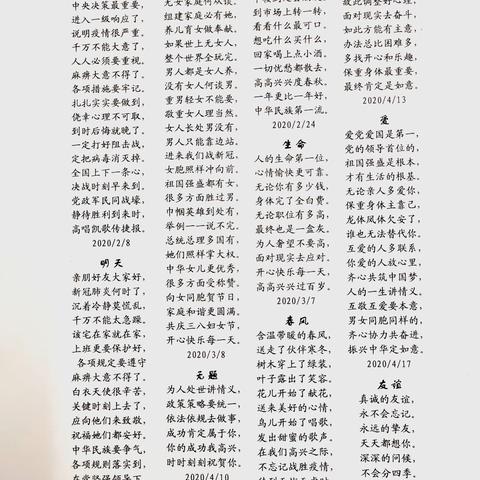 中央决策最重要，
进入一级响应了，
说明疫情很严重，
千万不能大意了，
人人必须要重视。
麻痹大意不得了。
各项措施要牢记。
扎扎实实要做到，
侥幸心理不可取，
到时后悔就晚了。
一定打好阻击战，
定把病毒消灭掉。
全国上下一条心，
决战时刻早来到。
党政军民同战壕，
静待胜利到来时，
高唱凯歌传捷报。
2020/2/8
明天
亲朋好友大家好，
新冠肺炎何时了，
沉着冷静莫慌乱，
千万不能太急躁。
该宅在家就在家，
上班更要保护好，
各项规定要遵守
麻痹大意不得了。
白衣天使很辛苦，
关键时刻上去了，
应向他们来致敬，
祝福她们都安好。
中华民族要争气，
各项规则落实到，
在党坚强领导下
无女家庭何从谈。
组建家庭必有她，
养儿育女做奉献。
如果世上无女人，
整个世界全玩完。
男人都是女人养，
没有女人何谈男。
重男轻女不能要，
敬重女人理当然。
女人长处男没有，
男人只能靠边站。
进来我们战新冠，
女胞照样冲向前。
祖国强盛都有女，
很多方面胜过男。
巾帼英雄到处有，
举例一一说不完。
总统总理多国有，
她们照样掌大权。
中华女儿更优秀，
很多方面受称赞。
向女同胞贺节日，
家庭和谐更圆满。
共庆三八妇女节，
开心快乐每一天。
2020/3/8
无题
为人处世讲情义，
政策策略要统一，
依法依规去做事，
成功肯定属于你，
你的成功我高兴，
时时刻刻祝贺你。
2020/4/10
到市场上转一转，
看看什么最可口。
想吃什么买什么，
回家喝上点小酒。
一切忧愁都散去，
高高兴兴度春秋。
一年更比一年好，
中华民族第一流。
2020/2/24
生命
人的生命第一位，
心情愉快更可靠。
无论你有多少钱，
身体完了全白费。
无论职位有多高，
最终也是一会友。
为人奢望不要高，
面对现实去应对。
开心快乐每一天，
高高兴兴过百岁。
2020/3/7
春风
含温带暖的春风，
送走了伙伴寒冬，
树木穿上了绿裳，
叶子露出了笑容。
花儿开始了献花，
送来美好的心情，
鸟儿开始了唱歌，
发出甜蜜的歌声。
在我们高兴之际，
不忘记战胜疫情，
故此调整好心理，
面对现实去奋斗，
如此方能有主意，
办法总比困难多，
多找开心和乐趣，
保重身体最重要，
最终肯定是如意。
2020/4/13
爱
爱党爱国是第一，
党的领导首位的，
祖国强盛是根本，
才有生活的根基。
无论亲人多爱你，
保重身体主靠己，
龙体凤体欠安了，
谁也无法替代你。
互爱的人多联系，
你爱的人放心里，
齐心共筑中国梦，
人的一生讲情义。
互敬互爱要本意，
男女同胞同样的，
齐心协力共奋进，
振兴中华定如意。
2020/4/17
友谊
真诚的友谊，
永不会忘记。
永远的挚友，
天天都想你。
深深的问候，
不会分四季。